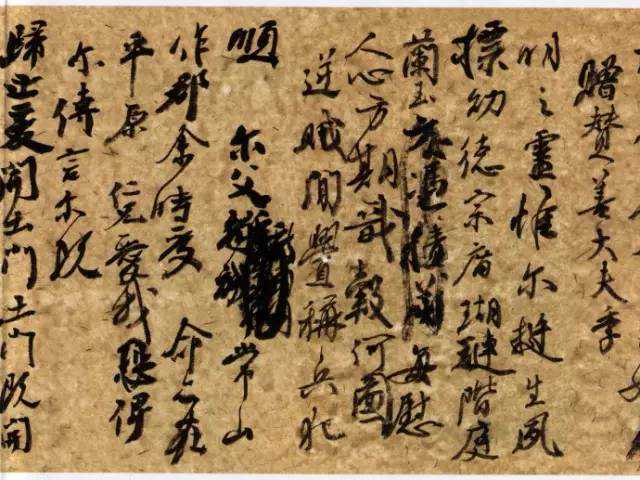 贈贊善大夫季
明之靈惟尔挺生夙
標幼德宗廟瑚璉階庭
蘭玉每慰
人心方期戩穀何圖
逆賊閒釁稱兵犯
順尔父常山
作郡余時受命亦在
平原仁兄愛我恐俾
尔傳言尔既
歸止爰開土門土門既開